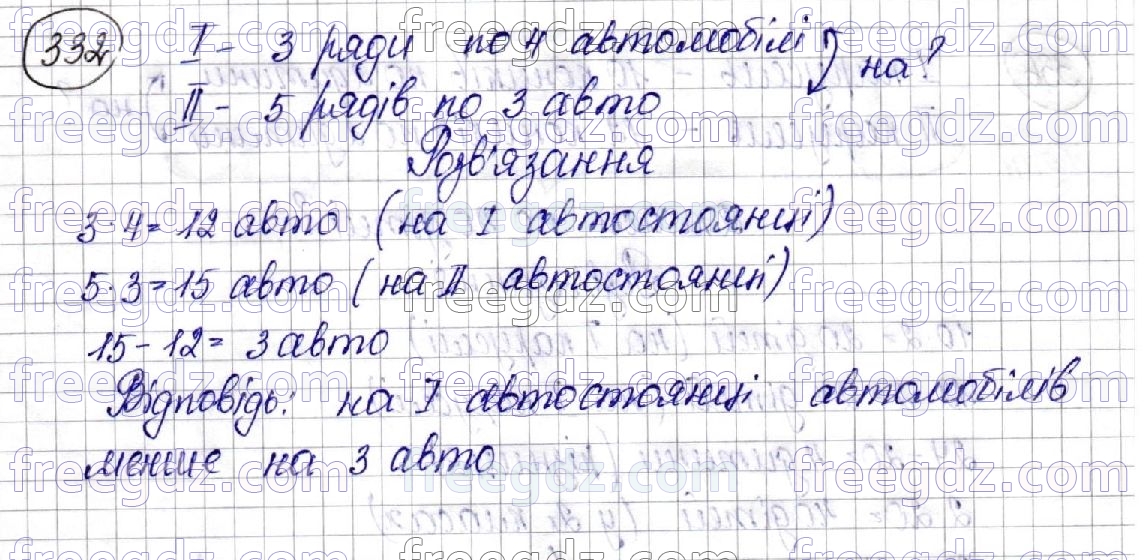 332 I - 3 ряди по 4 автомобілі на?
II - 5 рядів по 3 авто
Розв'язання
3·4=12 авто (на I автостоянці)
5·3=15 авто (на II автостоянці)
15-12= 3 авто
Відповідь: на I автостоянці автомобілів
менше на 3 авто.